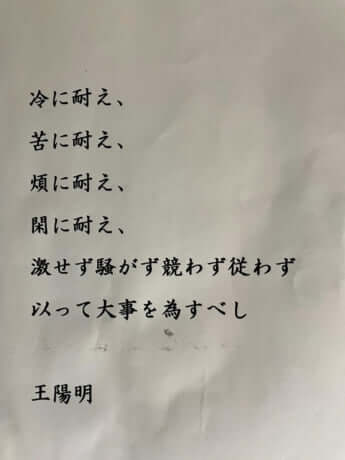 冷に耐え、
苦に耐え、
煩に耐え、
閑に耐え、
激せず騒がず競わず従わず
以って大事を為すべし
王陽明